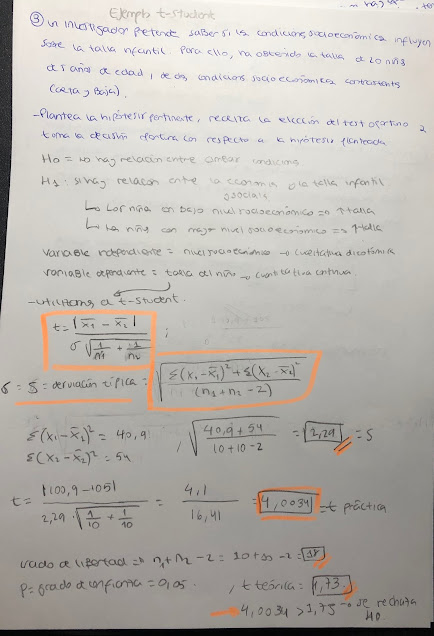 ... n haz ...
Ejemplo t-student
③ Un investigador pretende saber si las condiciones socioeconómica influyen
sobre la talla infantil. Para ello, ha obtenido la talla de 20 niñs
de 5 años de edad, de dos condicions socioeconómicas contrastants
(alta y baja).
- Plantea la hipótesis pertinente, realita la elección del test oportuno y
toma la decisión oportuna con respecto a la hipótesis planteada
H0 = no hay relación entre ambar condicions
H1 : si hay relacion entre la economia o la talla infantil
social
↳ Los niña con bajo nivel socioeconómico => ↑talla
↳ La niña con mayor nivel socioeconómico => ↑talla
variable independiente = nivel socioeconómico → cualitativa dicotómica
variable dependiente = talla del niño → cuantitativa continua.
- utilitams a t-student.
t = |x̄1 - x̄2| / σ √(1/n1 + 1/n2) ;
σ = S = derviación típica = √(Σ(x1 - x̄1)² + Σ(x2 - x̄2)² / (n1 + n2 - 2))
Σ(x1 - x̄1)² = 40,9
Σ(x2 - x̄2)² = 54
, √(40,9 + 54 / 10+10-2) = 2,29 = S
t = |100,9 - 105| / 2,29 · √(1/10 + 1/10) = 4,1 / 16,41 = 4,0034 = t práctica
grado de libertad => n1 + n2 - 2 = 10 + 10 - 2 = 18
P = grado de confianza = 0,05 , t teórica = 1,73
→ 4,0034 > 1,73 → se rechaza
H0.